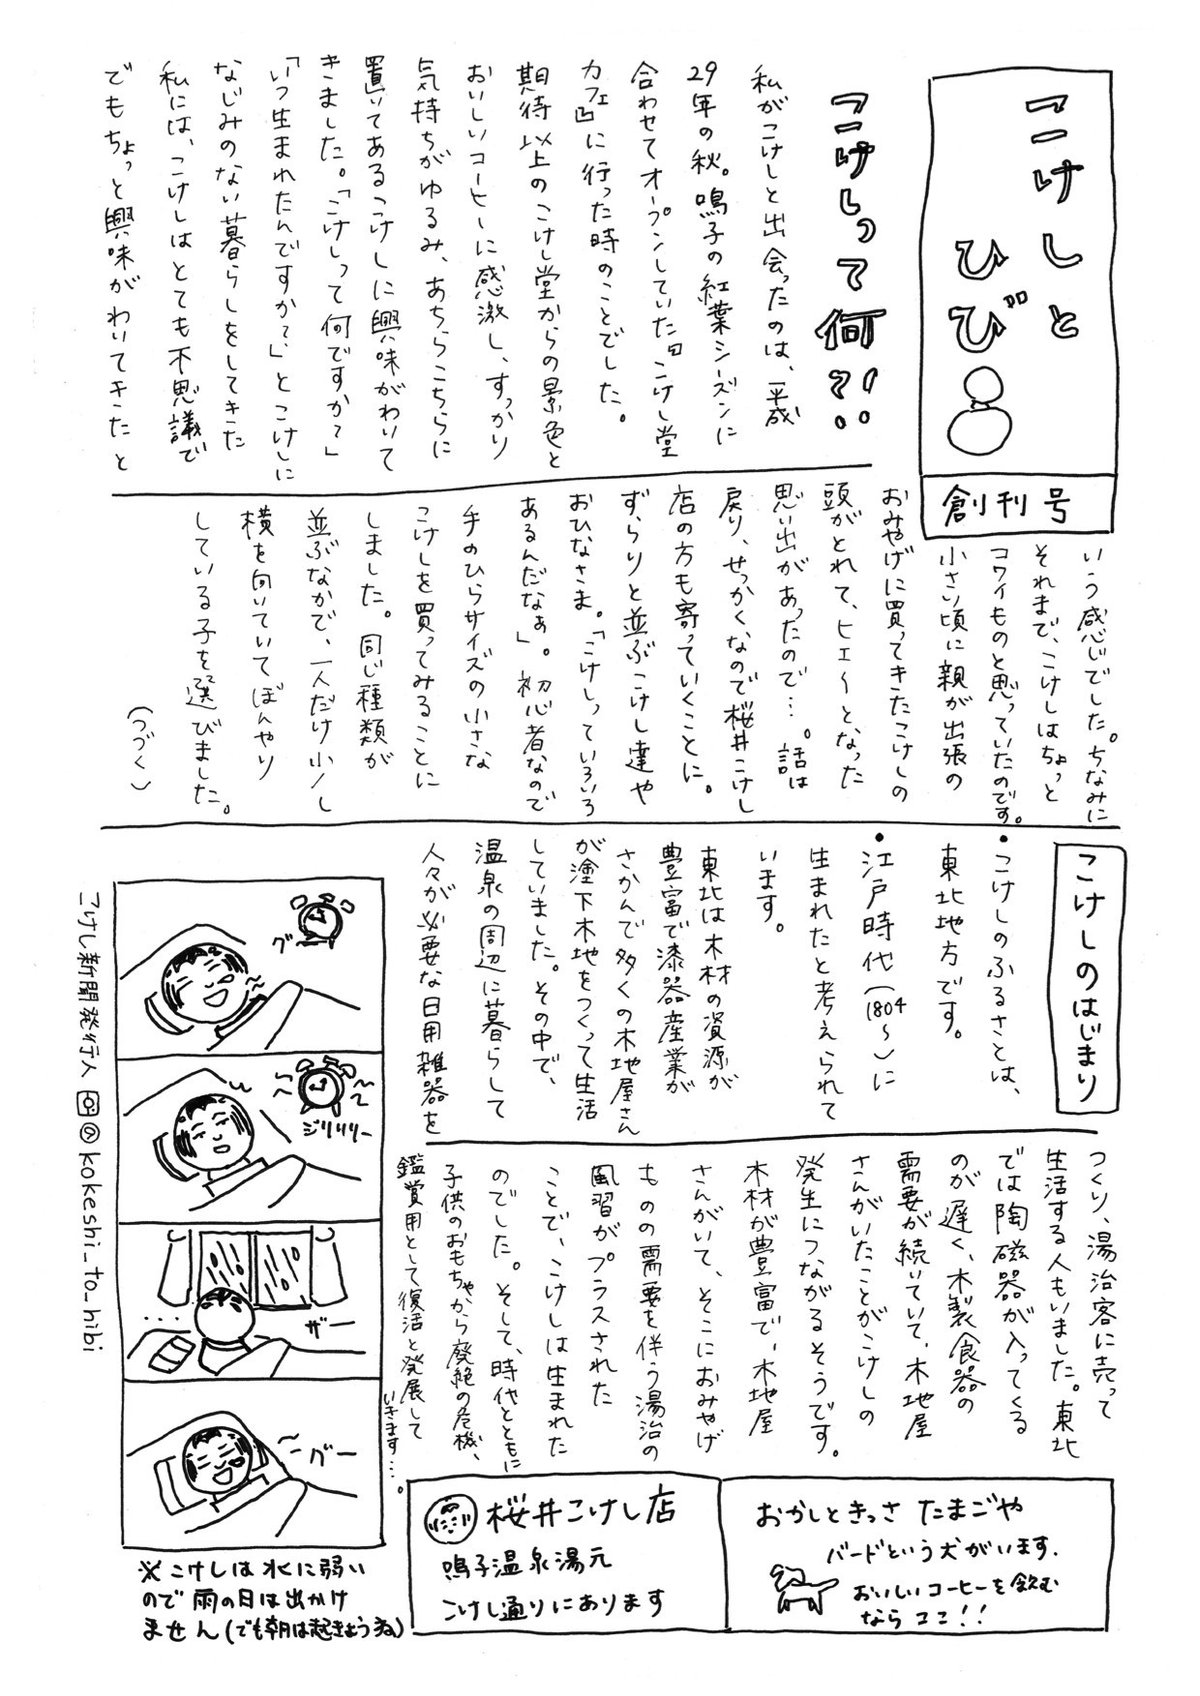 こけしと
ひび
創刊号
こけしって何?!
私がこけしと出会ったのは、平成
29年の秋。鳴子の紅葉シーズンに
合わせてオープンしていた『こけし堂
カフェ』に行った時のことでした。
期待以上のこけし堂からの景色と
おいしいコーヒーに感激し、すっかり
気持ちがゆるみ、あちらこちらに
置いてあるこけしに興味がわいて
きました。「こけしって何ですか?」
「いつ生まれたんですか?」とこけしに
なじみのない暮らしをしてきた
私には、こけしはとても不思議で
でもちょっと興味がわいてきたと
いう感じでした。ちなみに
それまで、こけしはちょっと
コワイものと思っていたのです。
小さい頃に親が出張の
おみやげに買ってきたこけしの
頭がとれて、ヒェ〜となった
思い出があったので…。話は
戻り、せっかくなので桜井こけし
店の方も寄っていくことに。
ずらりと並ぶこけし達や
おひなさま。「こけしっていろいろ
あるんだなぁ」。初心者なので
手のひらサイズの小さな
こけしを買ってみることに
しました。同じ種類が
並ぶなかで、一人だけ少し
横を向いていてぼんやり
している子を選びました。
(つづく)
こけしのはじまり
•こけしのふるさとは、
東北地方です。
•江戸時代(1804〜)に
生まれたと考えられて
います。
東北は木材の資源が
豊富で漆器産業が
さかんで多くの木地屋さん
が塗下木地をつくって生活
していました。その中で、
温泉の周辺に暮らして
人々が必要な日用雑器を
つくり、湯治客に売って
生活する人もいました。東北
では陶磁器が入ってくる
のが遅く、木製食器の
需要が続いていて、木地屋
さんがいたことがこけしの
発生につながるそうです。
木材が豊富で、木地屋
さんがいて、そこにおみやげ
ものの需要を伴う湯治の
風習がプラスされた
ことで、こけしは生まれた
のでした。そして、時代とともに
子供のおもちゃから廃絶の危機、
鑑賞用として復活と発展して
いきます…。
グー
ジリリリー
ザー
グー
※こけしは水に弱い
ので雨の日は出かけ
ません(でも朝は起きようね)
こけし新聞発行人 @kokeshi_to_hibi
桜井こけし店
鳴子温泉湯元
こけし通りにあります
おかしときっさ たまごや
バードという犬がいます.
おいしいコーヒーを飲む
ならココ!!